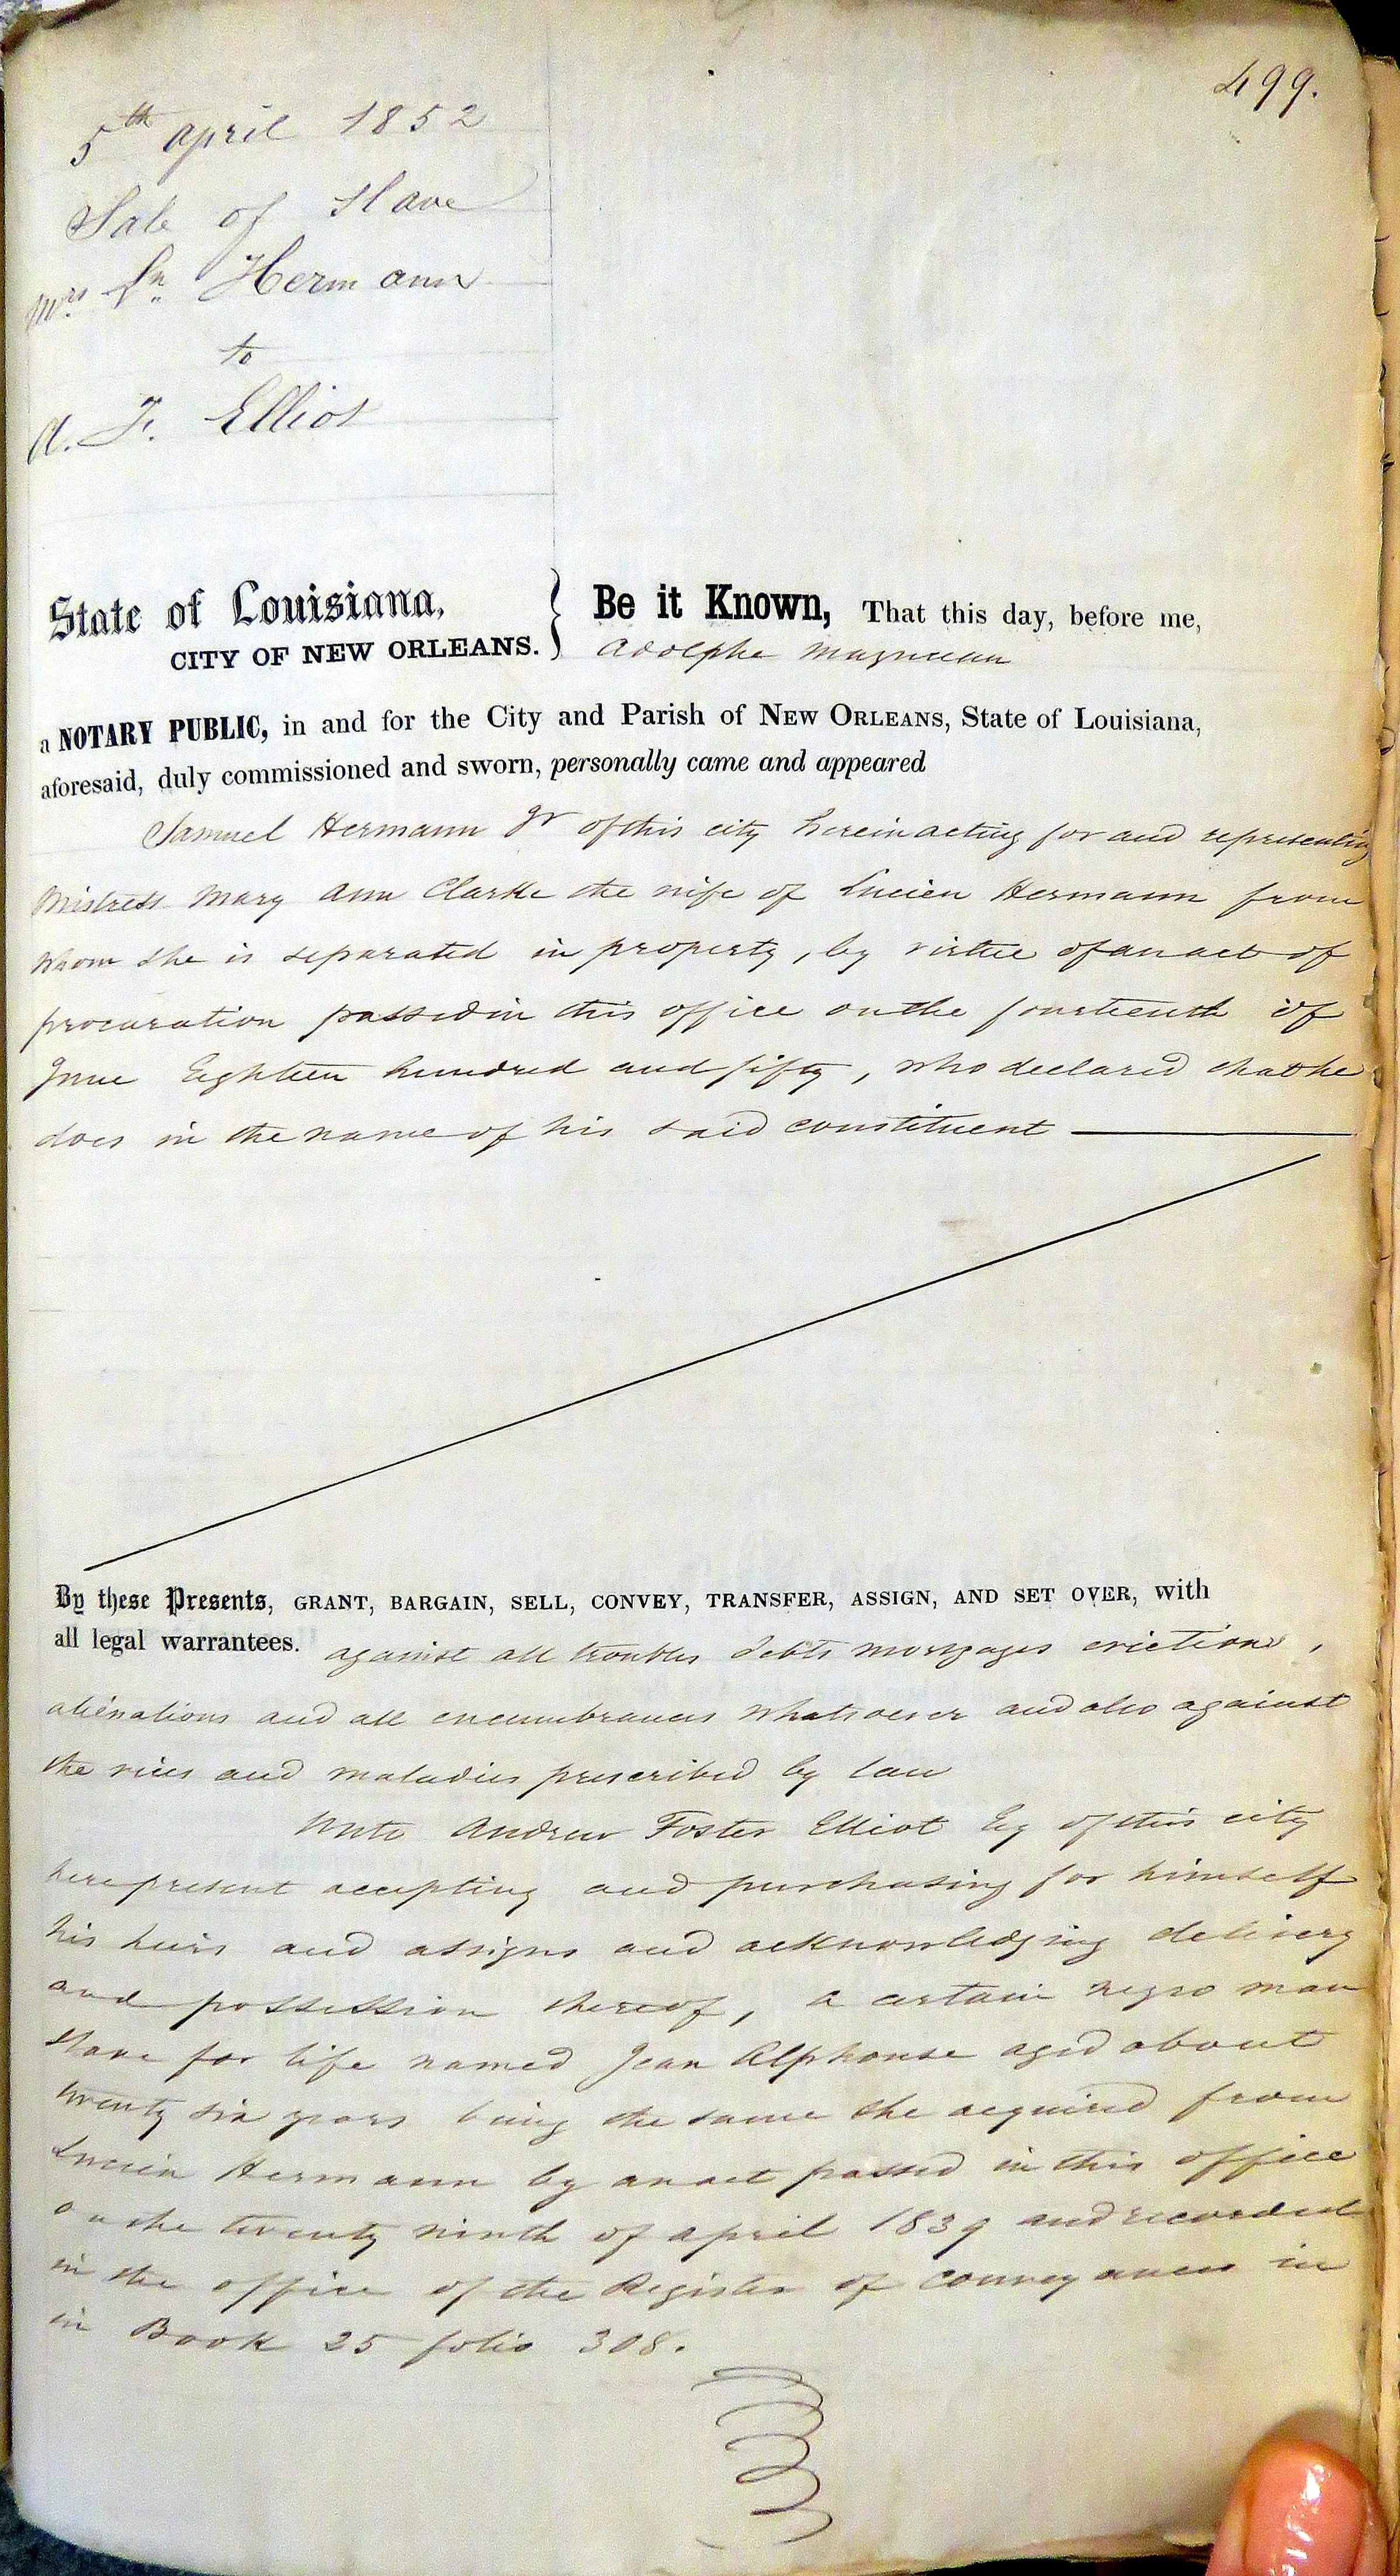 499.
5th april 1852
Sale of Slave
Mrs Ln Hermann
to
A. F. Elliot
State of Louisiana,
CITY OF NEW ORLEANS.
Be it Known, That this day, before me,
Adolphe Mazureau
a NOTARY PUBLIC, in and for the City and Parish of NEW ORLEANS, State of Louisiana,
aforesaid, duly commissioned and sworn, personally came and appeared
Samuel Hermann Jr of this city herein acting for and representing
Mistress Mary Ann Clarke the wife of Lucien Hermann from
whom she is separated in property, by virtue of an act of
procuration passed in this office on the fourteenth of
June Eighteen hundred and fifty, who declared that he
does in the name of his said constituent
By these Presents, GRANT, BARGAIN, SELL, CONVEY, TRANSFER, ASSIGN, AND SET OVER, with
all legal warrantees. against all troubles debts mortgages evictions,
alienations and all encumbrances whatsoever and also against
the vices and maladies prescribed by law
Unto Andrew Foster Elliot Esq of this city
here present accepting and purchasing for himself
his heirs and assigns and acknowledging delivery
and possession thereof, a certain negro man
slave for life named Jean Alphonse aged about
twenty six years being the same she acquired from
Lucien Hermann by an act passed in this office
on the twenty ninth of april 1839 and recorded
in the office of the Register of conveyances in
in Book 25 folio 308.